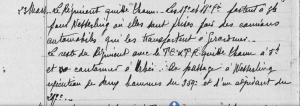 23 Mars. Le Régiment quitte Thann. Les 1er et 2e Bns partent à
pour Wesserling où elles sont prises par des camions
automobiles qui les transportent à Gérardmer.
Le reste du Régiment avec le quitte Thann à
et cantonner à Urbès. Au passage à Wesserling
exécution de deux hommes du 359e et d'un adjudant du